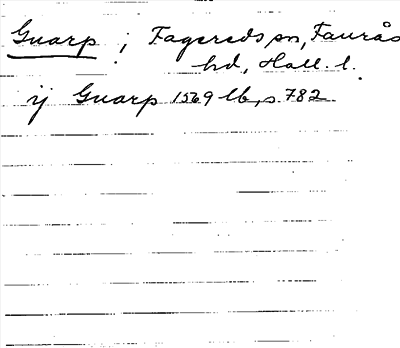 Gnarp ; Fagereds sn, Faurås
hd, Hall. l.
ij Gnarp 1569 lb, s. 782